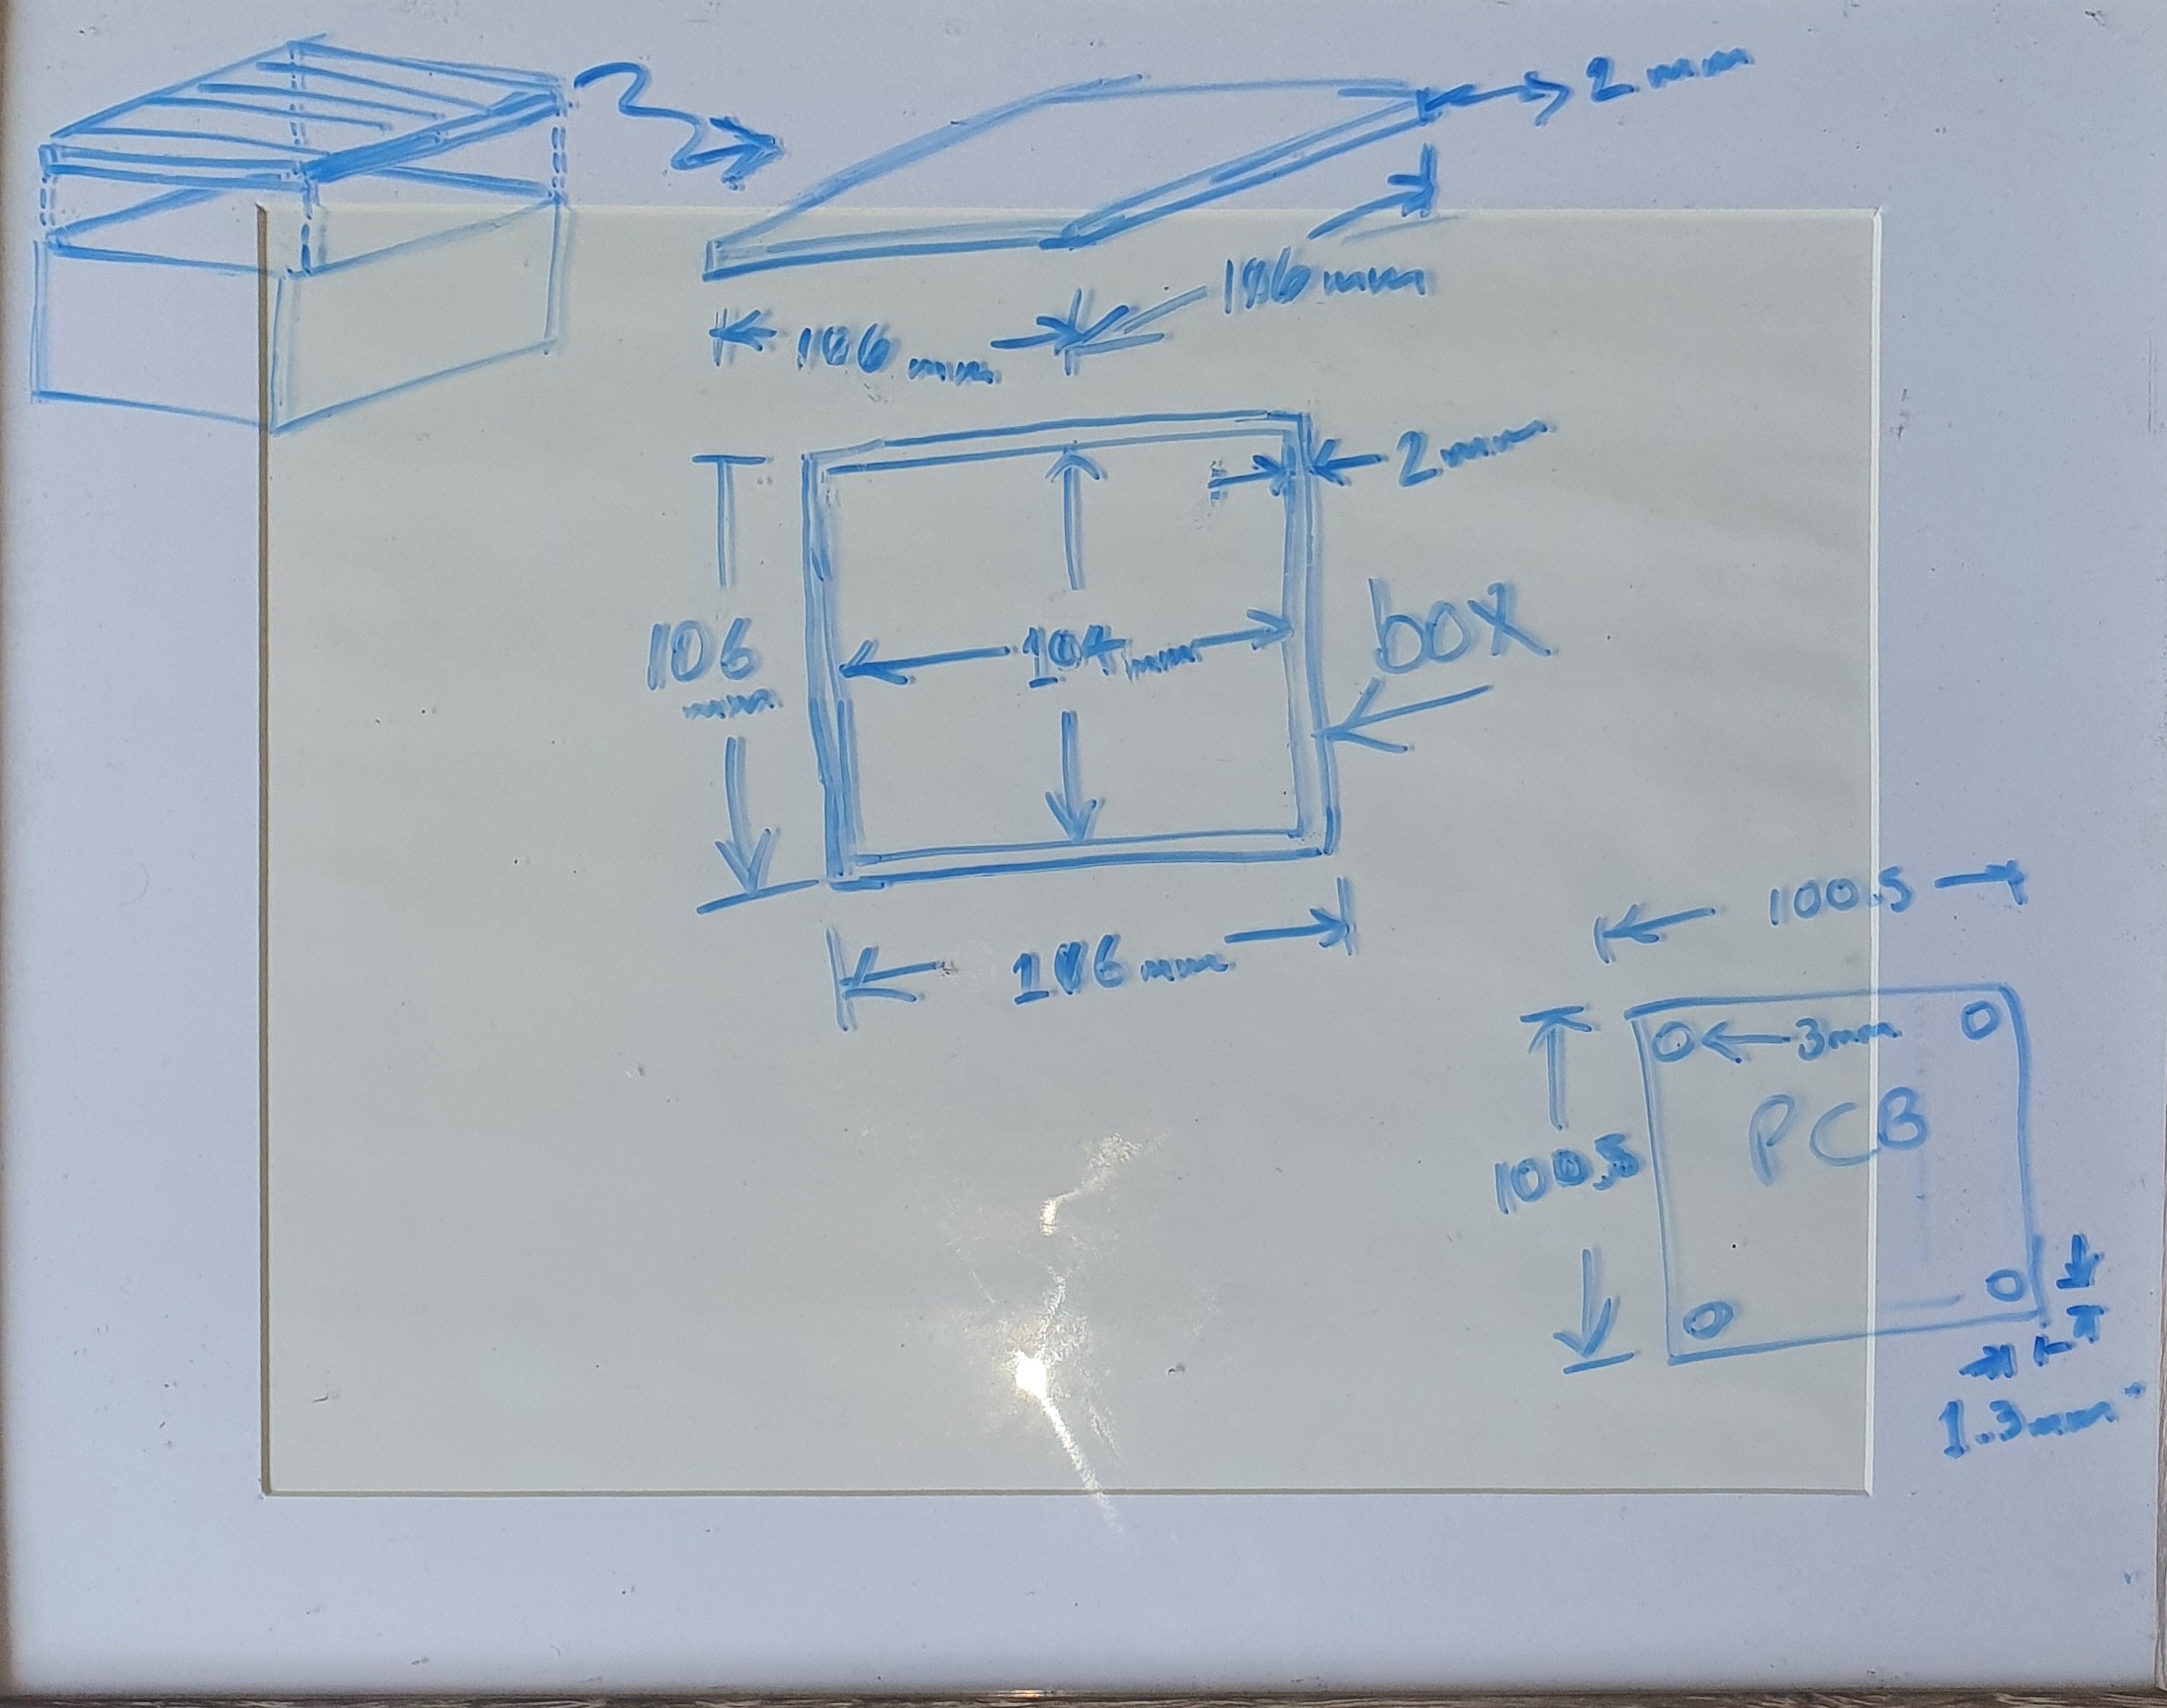 2 mm
106 mm
106 mm
2 mm
106
mm
104 mm
box
106 mm
100.5
3mm
PCB
100.5
1.3mm